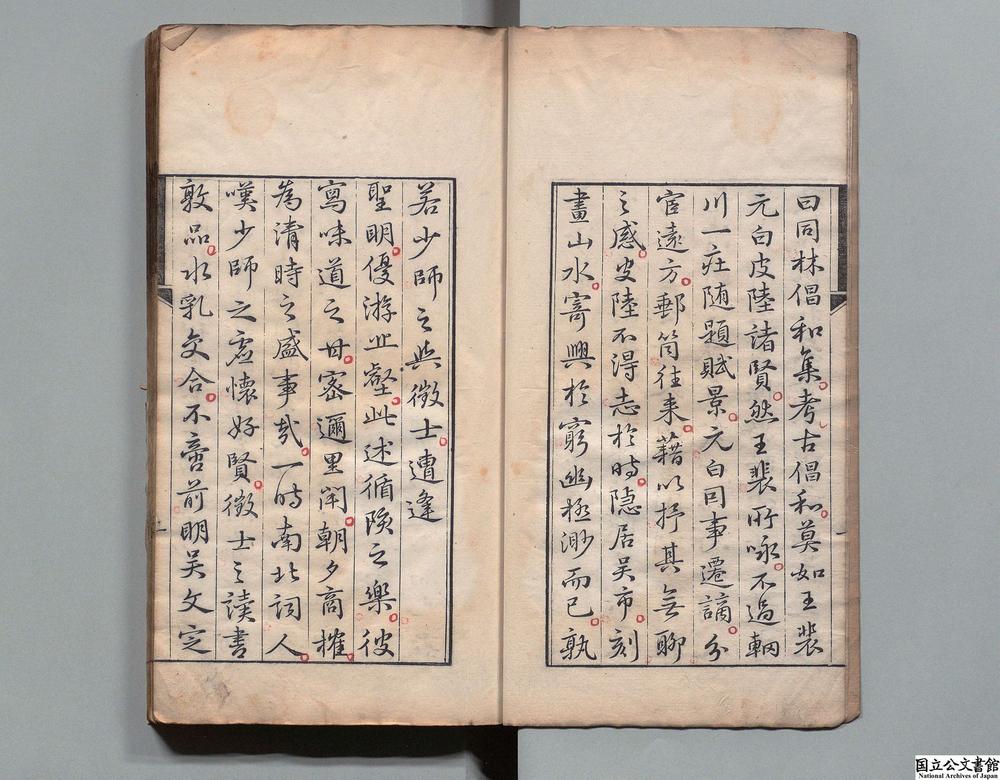 曰同林倡和集考古倡和莫如王裴
元白皮陸諸賢然王裴所咏不過輞
川一莊随題賦景元白同事遷謫分
宦遠方郵筒往来藉以抒其無聊
之感皮陸不得志於時隐居吴市刻
畫山水寄興於窮幽極渺而已孰
若少師之與徴士遭逢
聖明優游丘壑此述循陔之樂彼
寫味道之甘密邇里閈朝夕商榷
為清時之盛事哉一時南北詞人
嘆少師之虚懷好賢徴士之讀書
敦品水乳交合不啻前明吴文定
一
二
国立公文書館
National Archives of Japan